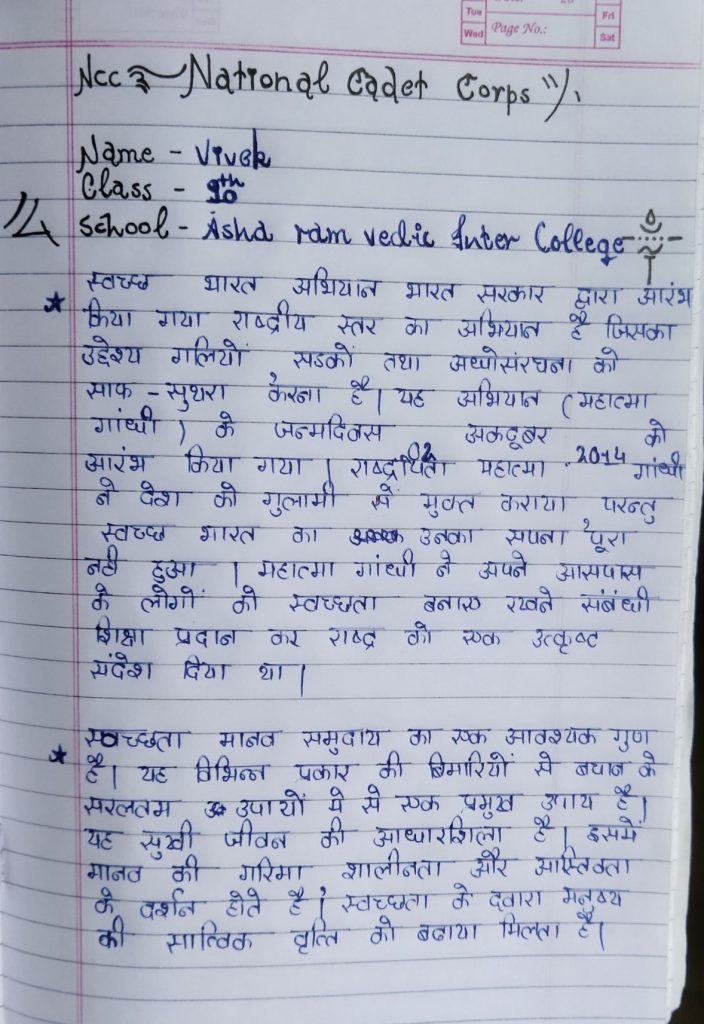 Tue
Wed
Page No.:
Fri
Sat
Ncc National Cadet Corps "/.
Name - Vivek
Class - 10th
School - Asha ram vedic Inter College
स्वच्छ भारत अभियान भारत सरकार द्वारा आरंभ
★ किया गया राष्ट्रीय स्तर का अभियान है जिसका
उद्देश्य गलियों सडकों तथा अधोसंरचना को
साफ - सुथरा करना है। यह अभियान (महात्मा
गांधी) के जन्मदिवस 02 अकटूबर 2014 को
आरंभ किया गया। राष्ट्रपिता महात्मा गांधी
ने देश को गुलामी से मुक्त कराया परन्तु
स्वच्छ भारत का उनका सपना पूरा
नही हुआ। महात्मा गांधी ने अपने आसपास
के लोगों को स्वच्छता बनाए रखने संबंधी
शिक्षा प्रदान कर राष्ट्र को एक उत्कृष्ट
संदेश दिया था।
स्वच्छता मानव समुदाय का एक आवश्यक गुण
★ है। यह विभिन्न प्रकार की बिमारियों से बचाव के
सरलतम उपायों मे से एक प्रमुख उपाय है।
यह सुखी जीवन की आधारशिला है। इसमें
मानव की गरिमा शालीनता और आस्तिकता
के दर्शन होते है। स्वच्छता के दवारा मनुष्य
की सात्विक वृत्ति को बढाया मिलता है।